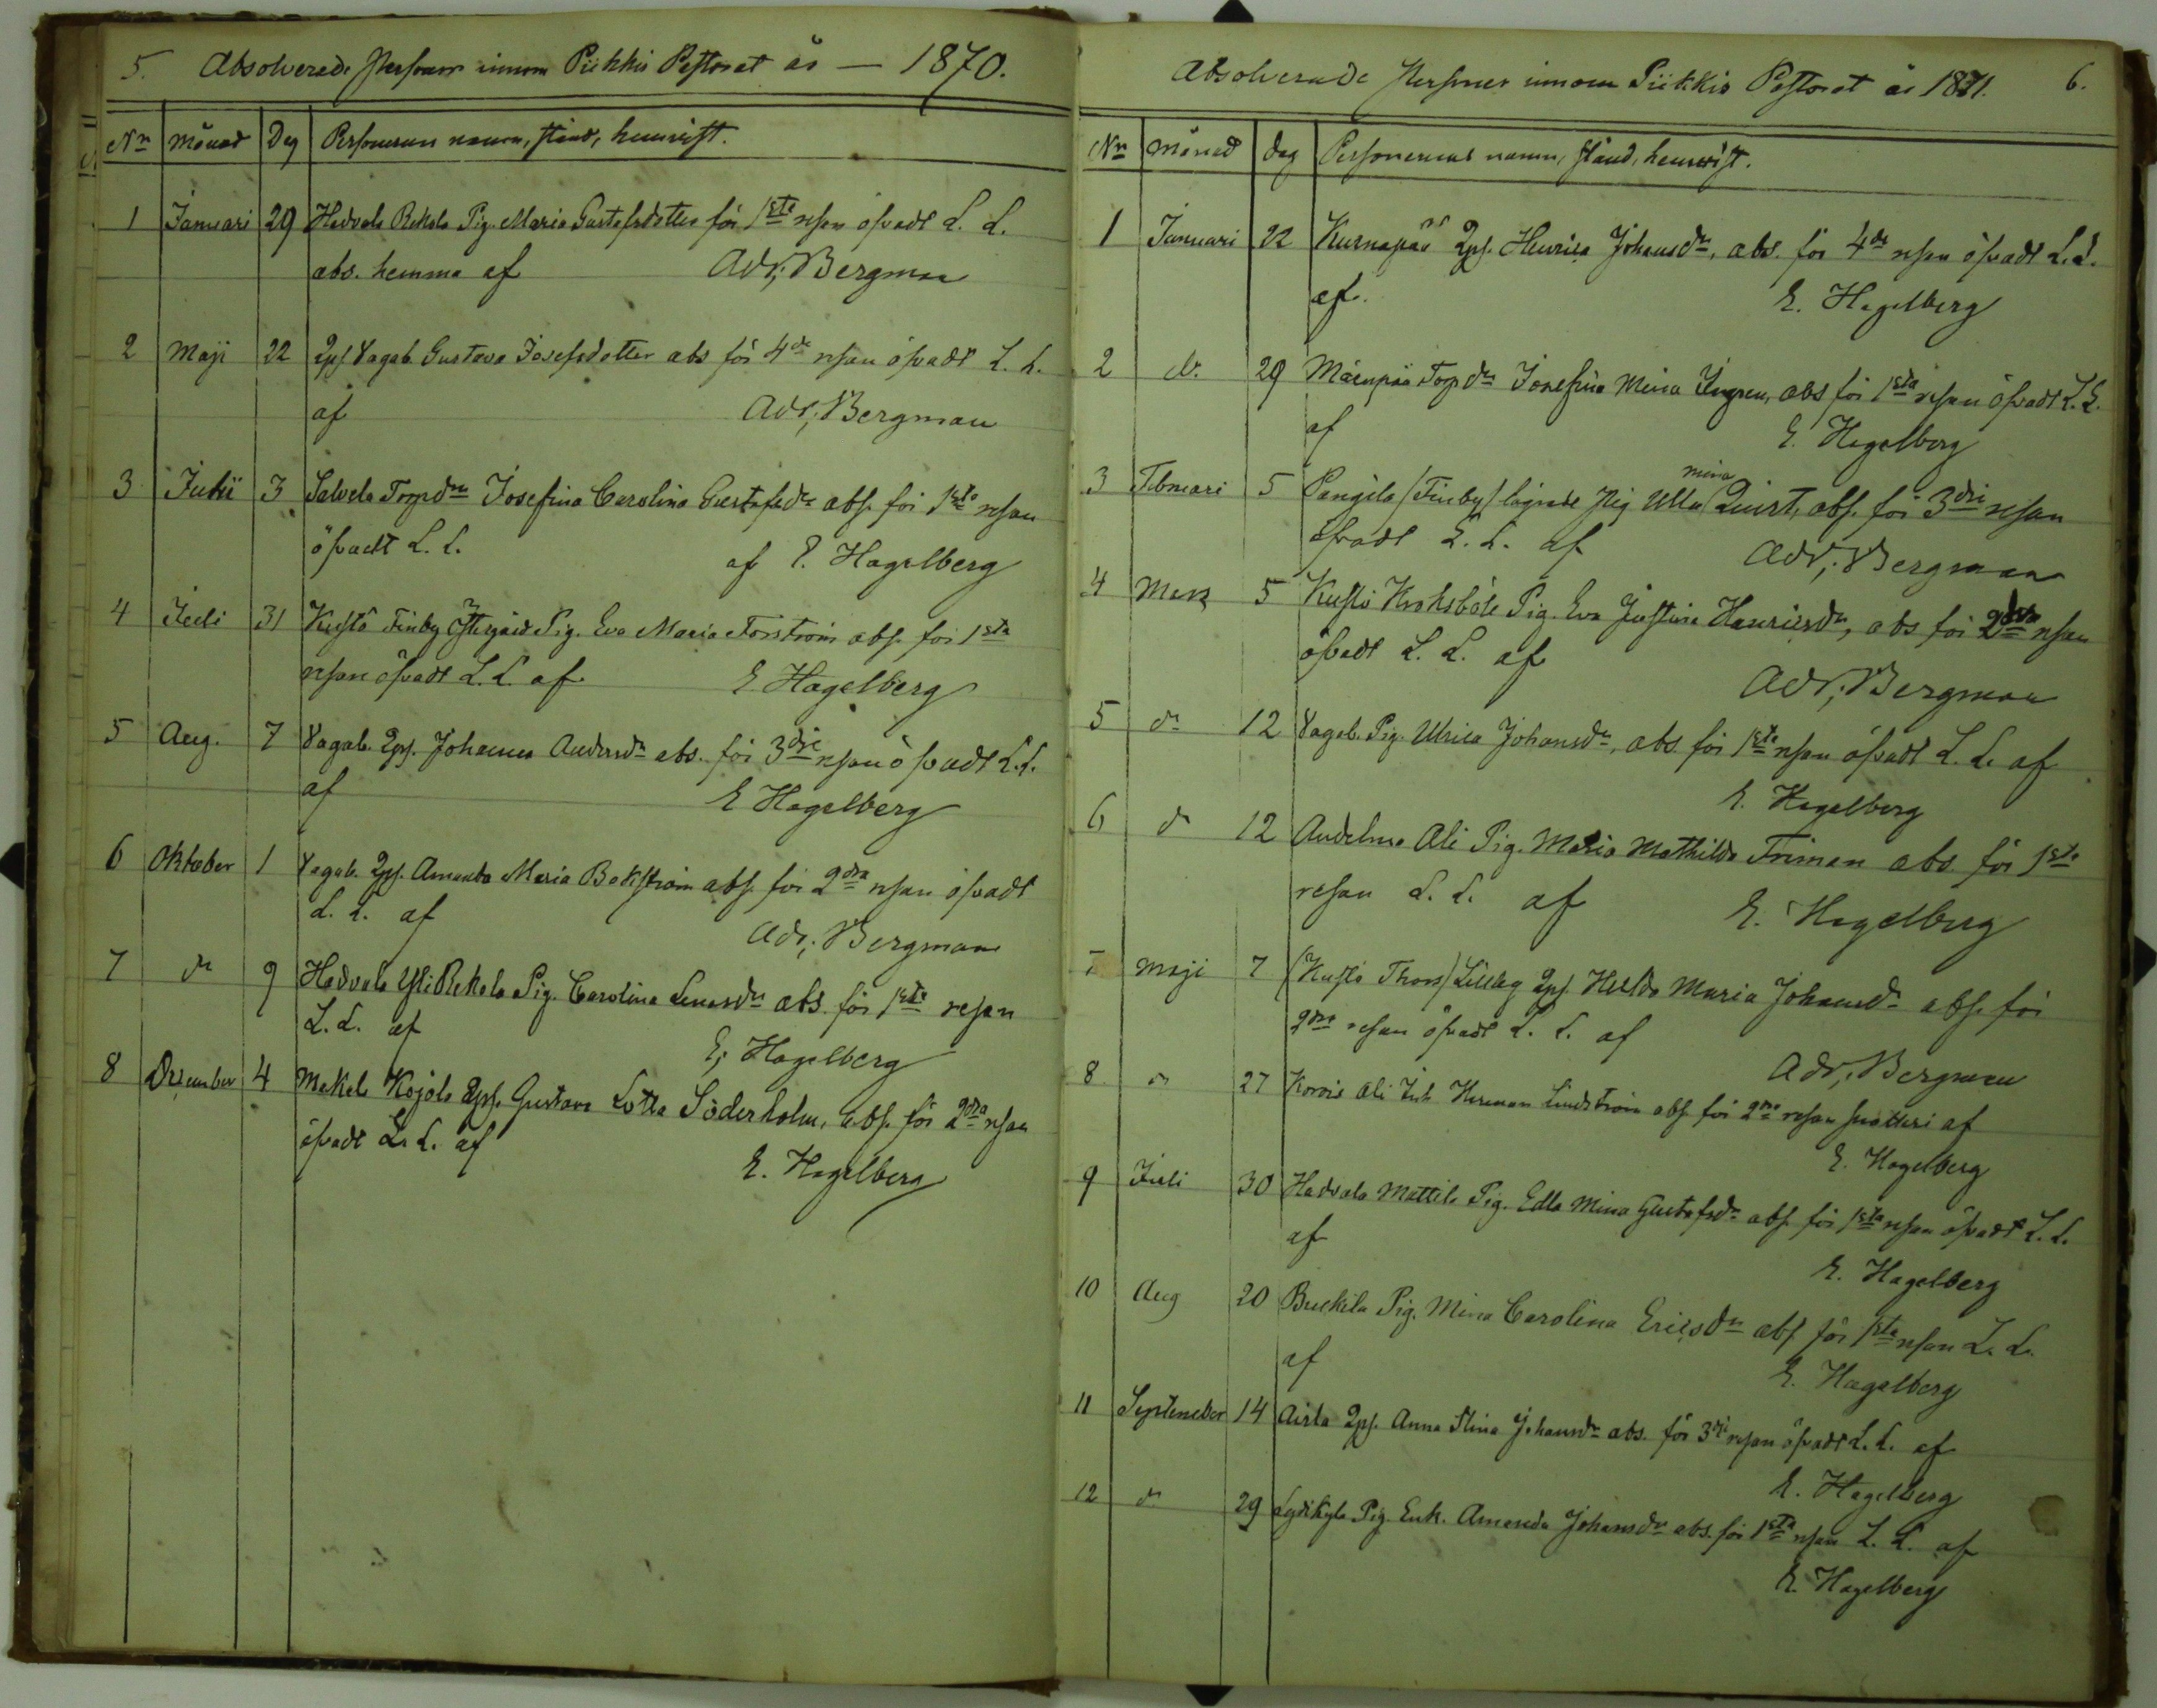 5. Absolverade Personer innom Piikkis Pastorat år — 1870.
Nr Månad Dag Personernas namn, stånd, hemvist.
1 Januari 29 Hadvala Rekola Pig. Maria Gustafsdotter för 1sta resan öfvadt L. L.
abs. hemma af Adr; Bergman
2 Maji 22 Qps Vagab. Gustava Josefsdotter abs för 4de resan öfvadt L. L.
af Adr; Bergman
3 Julii 3 Salvela Torp dr Josefina Carolina Gustafsdr abs. för 1sta resan
öfvadt L. L. af E. Hagelberg
4 Juli 31 Kustö Finby Östergård Pig. Eva Maria Forström abs. för 1sta
resan öfvadt L. L. af E. Hagelberg
5 Aug. 7 Vagab. Qps. Johanna Andersdr abs. för 3dje resan öfvadt L. L.
af E Hagelberg
6 Oktober 1 Vagab. Qps. Amanda Maria Bokström abs. för 2dra resan öfvadt
L. L. af Adr; Bergman
7 dr 9 Hadvala Yli Rekola Pig. Carolina Lenasdr abs. för 1sta resan
L. L. af E; Hagelberg
8 December 4 Makel Kojola Qps. Gustava Lotta Söderholm, abs. för 2dra resan
öfvadt L. L. af E. Hagelberg
Absolverade Personer innom Piikkis Pastorat år 1871. 6.
Nr Månad dag Personernas namn, stånd, hemvist.
1 Januari 22 Kurnapää Qps. Henrica Johansdr, abs. för 4de resan öfvadt L. L.
af. E. Hagelberg
2 dr 29 Mäenpää Torp dr Josefina Mina Ingren, abs för 1sta resan öfvadt L. L.
af E. Hagelberg
3 Februari 5 Pangila (Finby) Pig Ulla mina Quist, abs. för 3dje resan
öfvadt L. L. af Adr; Bergman
4 Mars 5 Kustö Kroksböle Pig. Eva Justina Henricsdr, abs för 2dra resan
öfvadt L. L. af Adr; Bergman
5 dr 12 Vagab. Pig. Ulrica Johansdr, abs. för 1sta resan öfvadt L. L. af
E. Hagelberg
6 dr 12 Audelma Ali Pig. Maria Mathilda Friman abs. för 1sta
resan L. L. af E. Hagelberg
7 Maji 7 (Kustö Thors) Qps Hulda Maria Johansdr abs. för
2dra resan öfvadt L. L. af Adr; Bergman
8 dr 27 Korvis Ali Inh Herman Lindström abs för 2dra resan snatteri af
E. Hagelberg
9 Juli 30 Hadvala Mattila Pig. Edla Mina Gustafsdr abs. för 1sta resan öfvadt L. L.
af E. Hagelberg
10 Aug 20 Buskila Pig. Mina Carolina Ericsdr abs för 1sta resan L. L.
af E. Hagelberg
11 September 14 Airla Qps. Anna Stina Johansdr abs. för 3dje resan öfvadt L. L. af
E. Hagelberg
12 dr 29 Lydikylä Pig. Enk. Amanda Johansdr abs. för 1sta resan L. L. af
E. Hagelberg